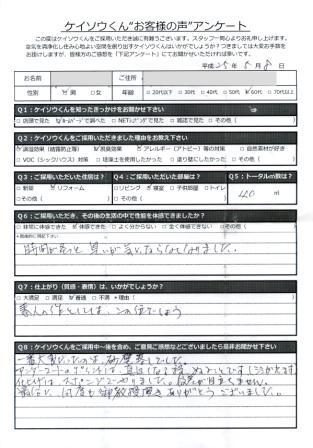 ケイソウくん"お客様の声"アンケート
この度はケイソウくんをご採用いただき誠に有難うございます。スタッフ一同心よりお礼申し上げます。
空気を清浄化し住み心地よい空間を創り出すケイソウくんはいかがでしょうか?つきましては大変お手数を
お掛けしますが、皆様方のご感想を「下記アンケート」にてお聞かせいただければ幸いです。
平成25年5月8日
お名前 ご住所
性別 男 □女 年代 60代 □70代以上
Q1:ケイソウくんを知ったきっかけをお聞かせ下さい
□店頭で見た ホームページで調べた □NETショッピングで見た □雑誌で見た □その他( )
Q2:ケイソウくんをご採用いただきました理由をお教え下さい
調湿効果(結露防止等) 脱臭効果 アレルギー(アトピー)等の対策 □自然素材が好き
□VOC(シックハウス)対策 □珪藻土を使用したかった □塗り壁にしたかった □その他( )
Q3:ご採用いただいた住居は?
□新築 リフォーム
□その他( )
Q4:ご採用いただいた部屋は?
□リビング 寝室 □子供部屋 □トイレ
□その他( )
Q5:トータル㎡数は?
40 ㎡
Q6:ご採用いただき、その後の生活の中で性能を体感できましたか?
□非常に体感できた 体感できた □よく分からない □全く体感できない □その他( )
時間がたつと臭いが気にならなくなりました。
Q7:仕上がり(質感・表情)は、いかがでしょうか?
□大満足 □満足 普通 □不満 *理由(
素人の作としては、この位でしょう
Q8:ケイソウくんをご採用中~後を含め、ご意見ご感想などございましたら是非お聞かせ下さい
一番大変だったのは、
仕上げは、スポンジでやりました。
最後に、何度も御教授頂きありがとうございました。